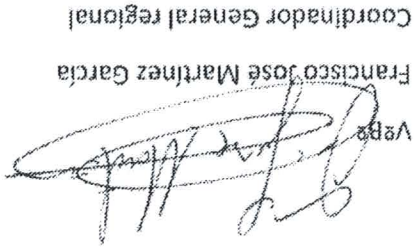 VºBº
Francisco José Martínez García
Coordinador General regional